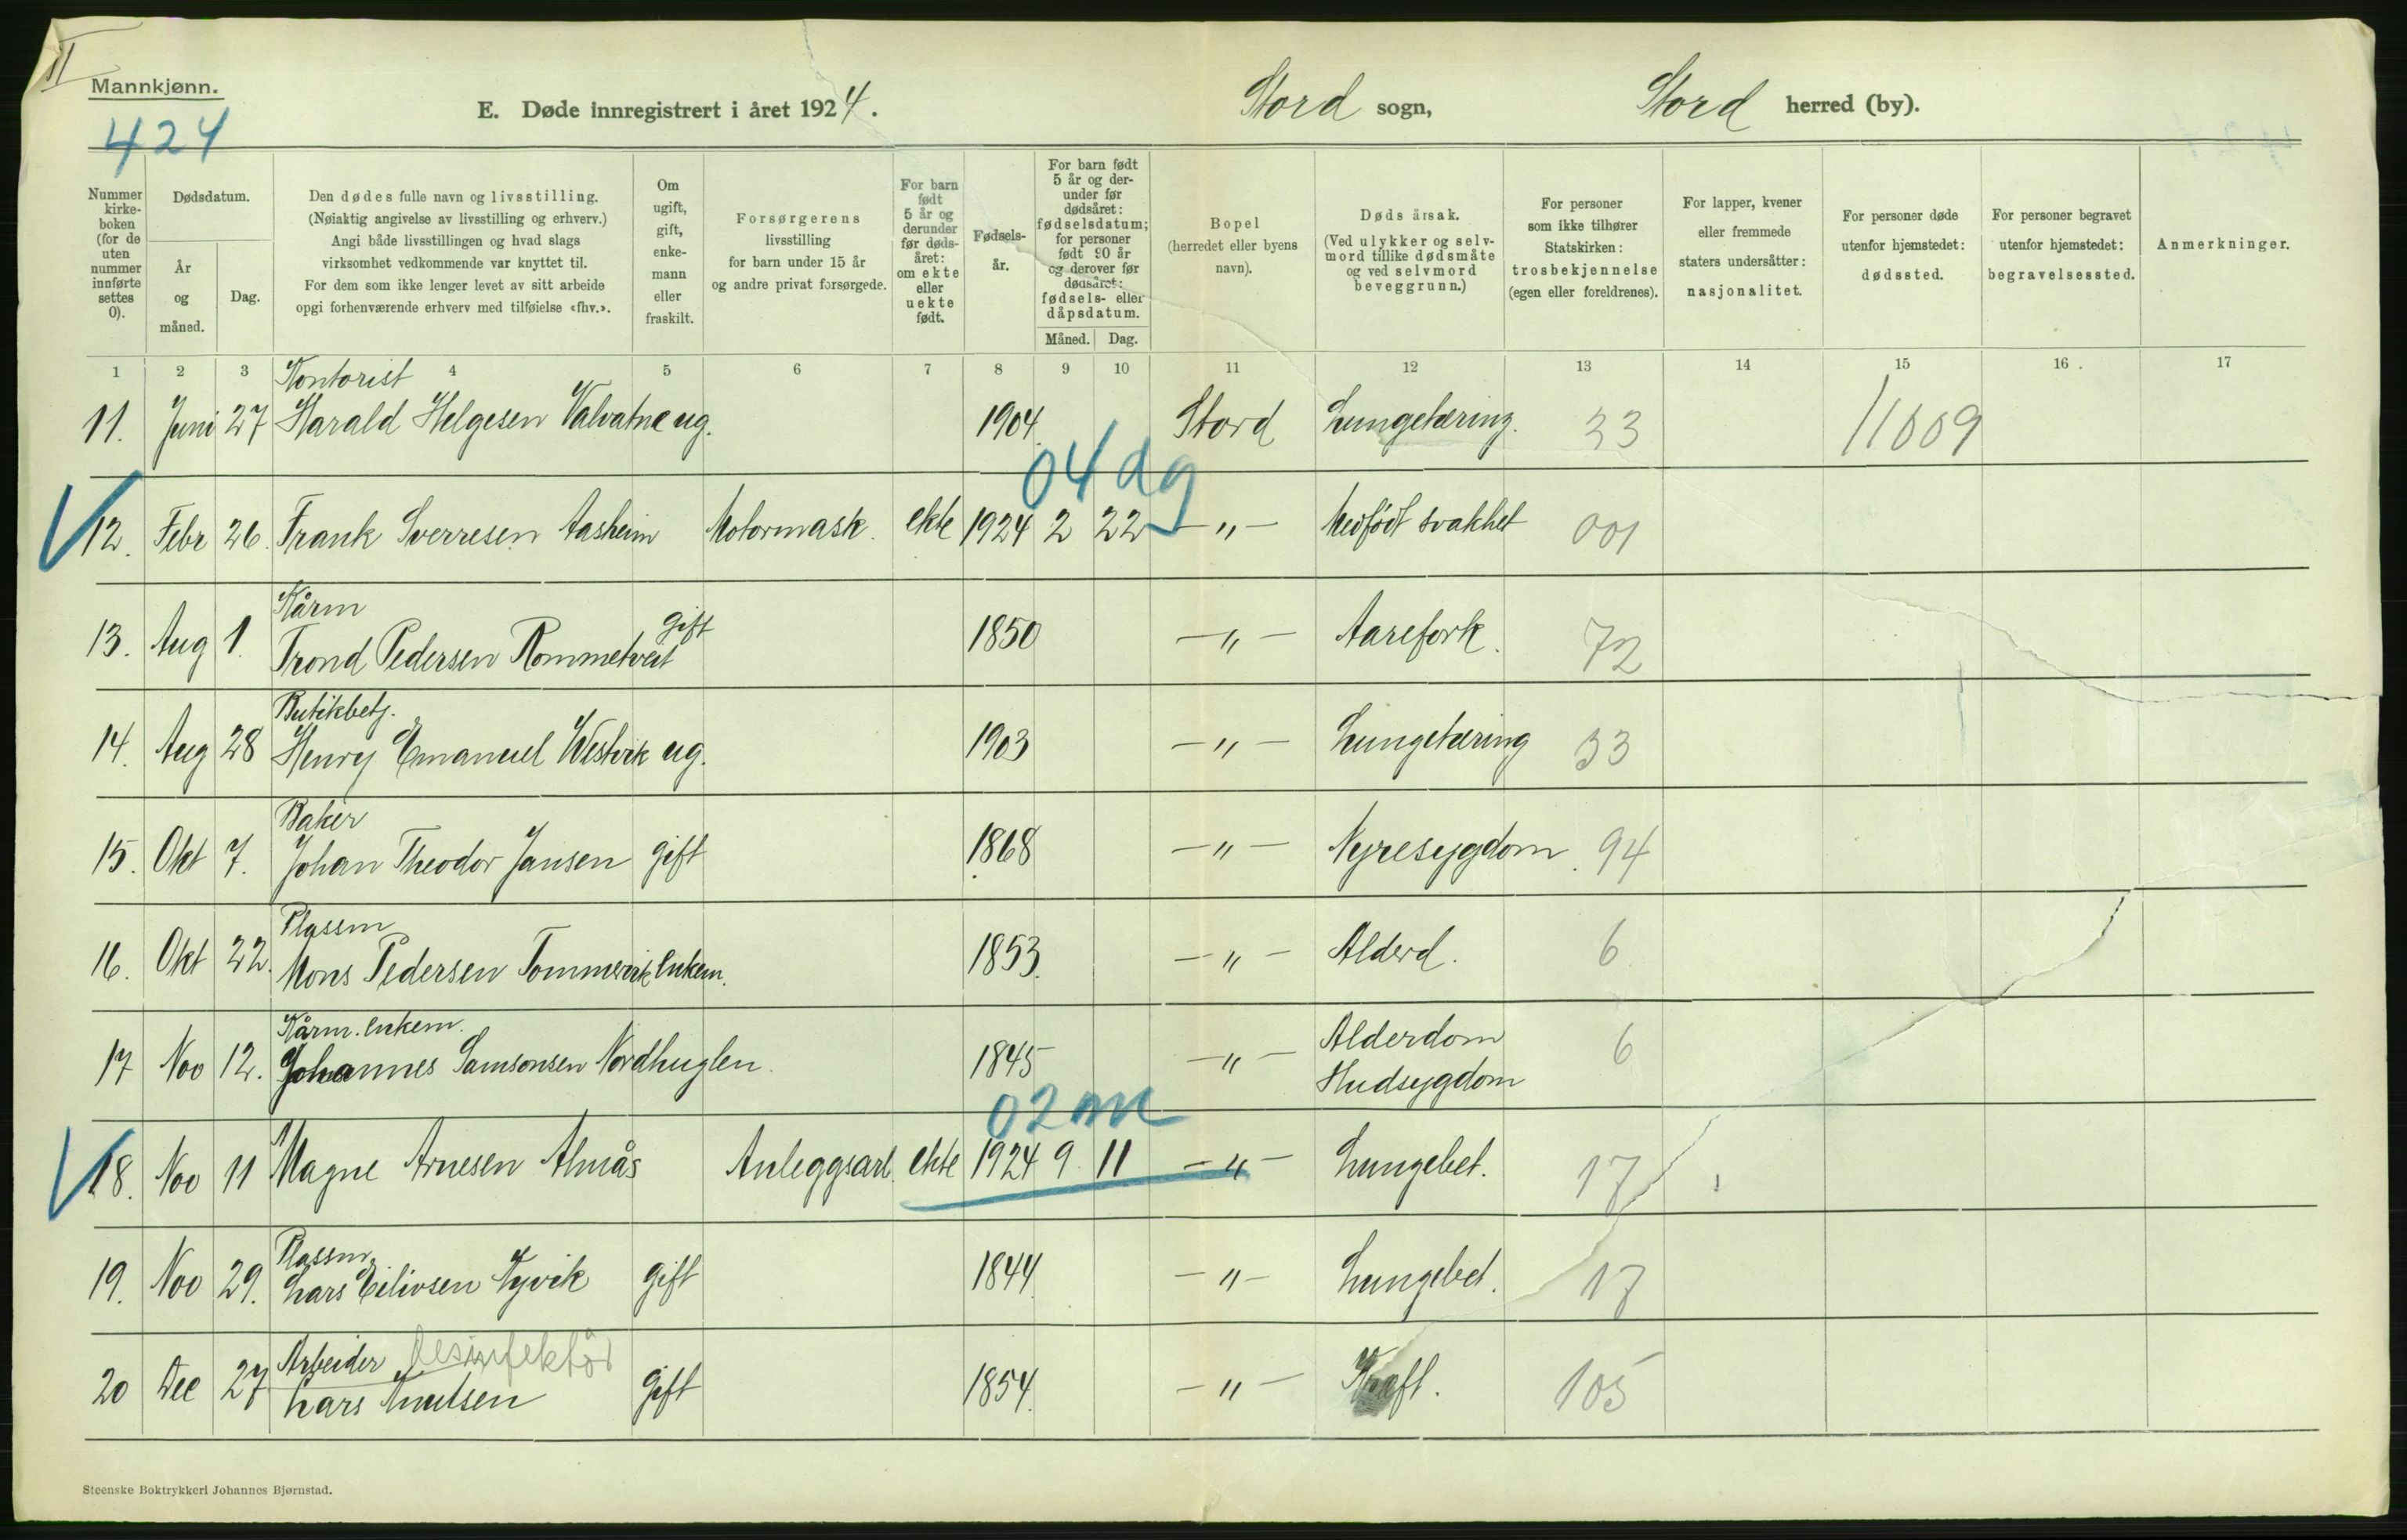 II
Mannkjønn.
424
E. Døde innregistrert i året 1924.
Stord sogn,
Stord herred (by).
Nummer kirke- boken (for de uten nummer innførte settes 0).
Dødsdatum.
År og måned.
Dag.
Den dødes fulle navn og livsstilling.
(Nøiaktig angivelse av livsstilling og erhverv.)
Angi både livsstillingen og hvad slags
virksomhet vedkommende var knyttet til.
For dem som ikke lenger levet av sitt arbeide
opgi forhenværende erhverv med tilføielse «fhv.».
Om ugift, gift, enke- mann eller fraskilt.
Forsørgerens
livsstilling
for barn under 15 år
og andre privat forsørgede.
For barn født 5 år og derunder før døds- året: om ekte eller uekte født.
Fødsels- år.
For barn født 5 år og der- under før dødsåret: fødselsdatum; for personer født 90 år og derover før dødsåret: fødsels- eller dåpsdatum.
Måned. Dag.
Bopel
(herredet eller byens
navn).
Dødsårsak.
(Ved ulykker og selv-
mord tillike dødsmåte
og ved selvmord
beveggrunn.)
For personer
som ikke tilhører
Statskirken:
trosbekjennelse
(egen eller foreldrenes).
For lapper, kvener
eller fremmede
staters undersåtter:
nasjonalitet.
For personer døde
utenfor hjemstedet:
dødssted.
For personer begravet
utenfor hjemstedet:
begravelsessted.
Anmerkninger.
1 2 3 4 5 6 7 8 9 10 11 12 13 14 15 16. 17
Kontorist
11. Juni 27 Harald Helgesen Valvatne ug. 1904. Stord Lungetæring. 33 11009
04 dg
12. Febr 26. Frank Sverresen Aasheim Motormask. ekte 1924 2 22 — " — Medfødt svakhet 001
Kårm
13. Aug 1. Trond Pedersen Rommetveit gift 1850 — " — Aarefork. 72
Butikbetj.
14. Aug 28 Henry Emanuel Westvik ug. 1903 — " — Lungetæring 33
Baker
15. Okt 7. Johan Theodor Jansen gift 1868 — " — Nyresygdom. 94
Plassm
16. Okt 22. Mons Pedersen Tommervik Enkem. 1853. — " — Alderd. 6
Kårm. Enkem.
17 Nov 12. Johannes Samsonsen Nordhuglen. 1845 — " — Alderdom 6
Hudsygdom
02 m
18. Nov 11 Magne Arnesen Almås Anleggsarb. ekte 1924 9. 11 — " — Lungebet. 17
Plassm
19. Nov 29. Lars Eilivsen Tyvik gift 1844. — " — Lungebet. 17
Arbeider desinfektør
20 Dec 27 Lars Knutsen gift 1854. — " — Kræft. 105
Steenske Boktrykkeri Johannes Bjørnstad.